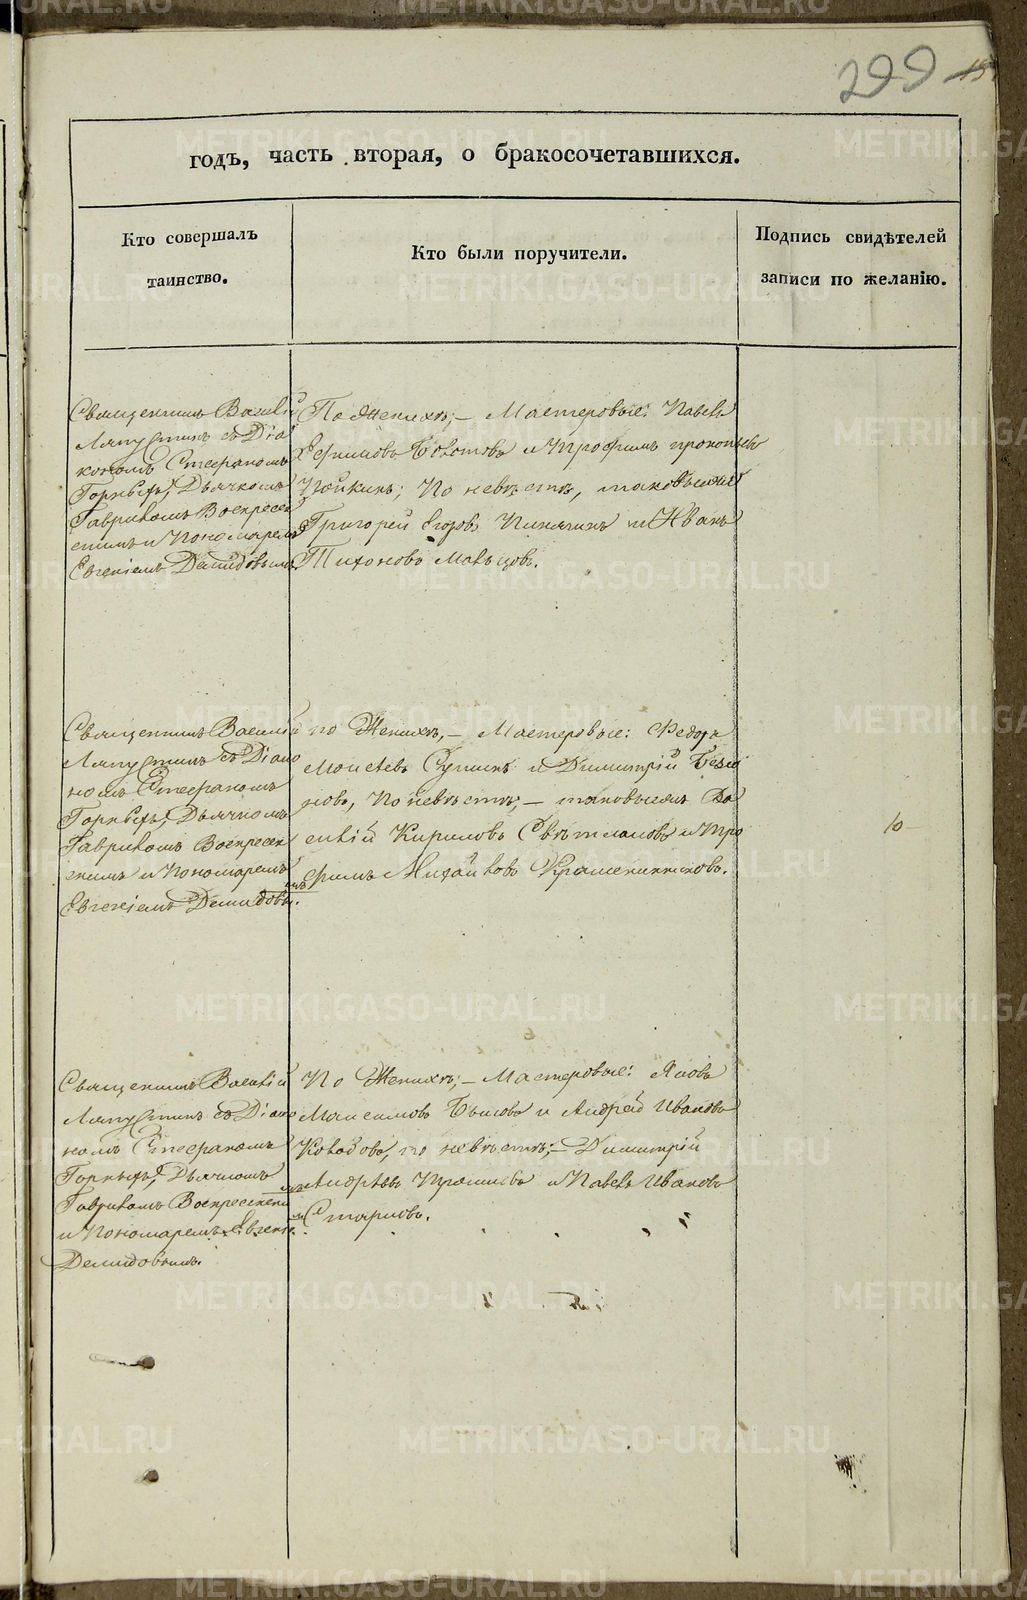 299
годъ, часть вторая, о бракосочетавшихся.
Кто совершалъ
таинство.
Кто были поручители.
Подпись свидѣтелей
записи по желанію.
Священникъ Василій
Ляпустинъ съ Діа
кономъ Стефаномъ
Горныхъ, Дьячкомъ
Гавриломъ Воскресен
скимъ и Пономаремъ
Евгеніемъ Демидовымъ
По Женихѣ; – Мастеровые: Павелъ
Ефимовъ Болотовъ и Трофимъ Прокопьевъ
По невѣстѣ, таковыежъ
Григорей Егоровъ и Иванъ
Тихоновъ
Священникъ Василій
Ляпустинъ съ Діако
номъ Стефаномъ
Горныхъ, Дьячкомъ
Гавриломъ Воскресен
скимъ и Пономаремъ
Евгеніемъ Демидовымъ.
по Женихѣ, – Мастеровые: Федоръ
Моисѣевъ и Димитрій
по невѣстѣ; – таковыежъ Ва
силій Кириловъ Свѣтлаковъ и Тро
фимъ Михайловъ Крашенинниковъ.
10
Священникъ Василій
Ляпустинъ съ Діако
номъ Стефаномъ
Горныхъ, Дьячкомъ
Гавриломъ Воскресенским
и Пономаремъ Евгеніемъ
Демидовымъ.
По Женихѣ; – Мастеровые: Яковъ
Максимовъ Быковъ и Андрей Ивановъ
по невѣстѣ; – Димитрій
Андрѣевъ и Павелъ Ивановъ
Стариковъ.
METRIKI.GASO-URAL.RU